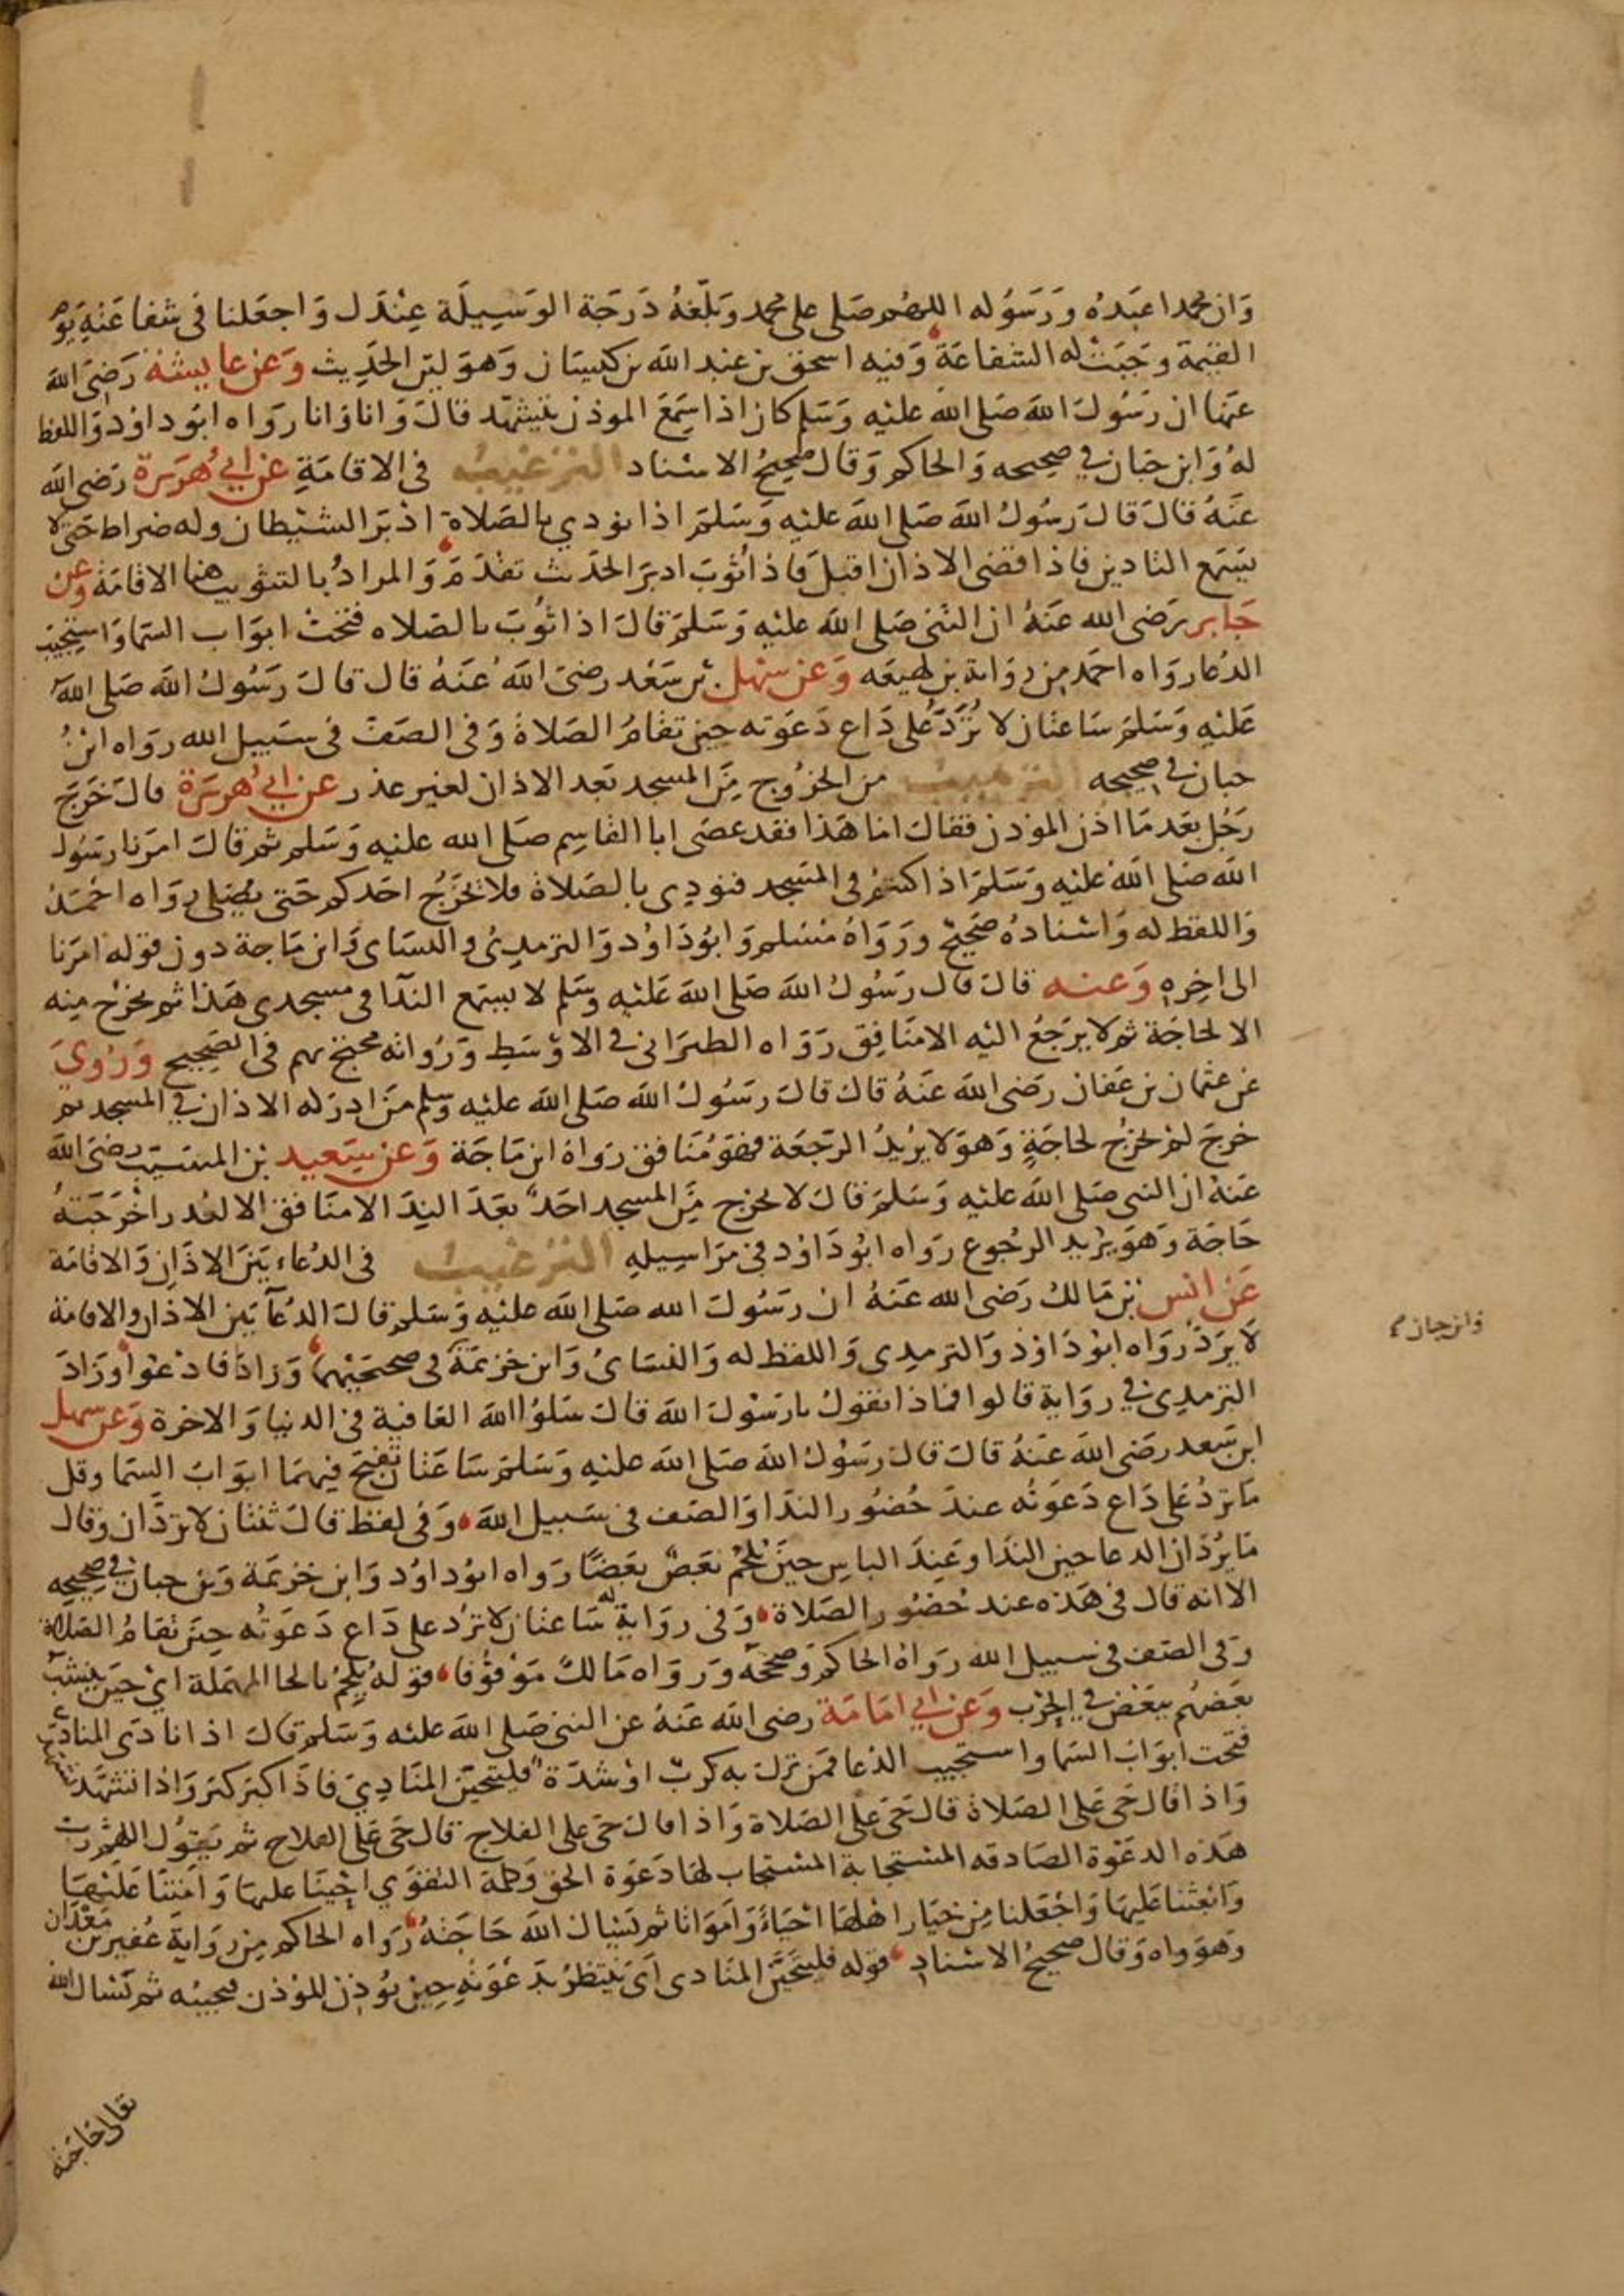 وان محمدا عبده ورسوله اللهم صلى على محمد وبلغه درجة الوسيلة عندك واجعلنا فى شفاعته يوم
القيمة وجبت له الشفاعة وفيه اسحق بن عبد الله بن كيسان وهو لين الحديث وعن عايشة رضى الله
عنها ان رسول الله صلى الله عليه وسلم كان اذا سمع الموذن يتشهد قال وانا وانا رواه ابو داود واللفظ
له وابن حبان في صحيحه والحاكم وقال صحيح الاسناد الترغيب فى الاقامة عن ابي هريرة رضى الله
عنه قال قال رسول الله صلى الله عليه وسلم اذا نودي بالصلاة ادبر الشيطان وله ضراط حتى لا
يسمع التادين فاذا قضى الاذان اقبل فاذا ثوب ادبر الحديث تقدم والمراد بالتثويب هنا الاقامة وعن
جابر رضى الله عنه ان النبى صلى الله عليه وسلم قال اذا ثوب بالصلاه فتحت ابواب السما واستجيب
الدعا رواه احمد من رواية بن لهيعه وعن سهل بن سعد رضى الله عنه قال قال رسول الله صلى الله
عليه وسلم ساعتان لا ترد على داع دعوته حين تقام الصلاة وفى الصف فى سبيل الله رواه ابن
حبان في صحيحه الترهيب من الخروج من المسجد بعد الاذان لغير عذر عن ابي هريرة قال خرج
رجل بعد ما اذن الموذن فقال اما هذا فقد عصى ابا القاسم صلى الله عليه وسلم ثم قال امرنا رسول
الله صلى الله عليه وسلم اذا كنتم فى المسجد فنودي بالصلاة فلا يخرج احدكم حتى يصلى رواه احمد
واللفظ له واسناده صحيح ورواه مسلم وابو داود والترمذي والنساى وابن ماجة دون قوله امرنا
الى اخره وعنه قال قال رسول الله صلى الله عليه وسلم لا يسمع الندآ فى مسجدى هذا ثم يخرج منه
الا لحاجة ثم لا يرجع اليه الا منافق رواه الطبرانى في الاوسط ورواته محتج بهم فى الصحيح وروي
عن عثمان بن عفان رضى الله عنه قال قال رسول الله صلى الله عليه وسلم من ادركه الاذان في المسجد ثم
خرج لم يخرج لحاجة وهو لا يريد الرجعة فهو منافق رواه ابن ماجة وعن سعيد بن المسيب رضى الله
عنه ان النبى صلى الله عليه وسلم قال لا يخرج من المسجد احد بعد الندا الا منافق الا لعذر اخرجته
حاجة وهو يريد الرجوع رواه ابو داود فى مراسيله الترغيب فى الدعاء بين الاذان والاقامة
عن انس بن مالك رضى الله عنه ان رسول الله صلى الله عليه وسلم قال الدعآ بين الاذان والاقامة
لا يرد رواه ابو داود والترمدى واللفظ له والنساى وابن خزيمة وابن حبان فى صحيحيهما وزادا فادعوا وزاد
الترمدى في رواية قالوا فماذا نقول يا رسول الله قال سلوا الله العافية فى الدنيا والاخرة وعن سهل
ابن سعد رضى الله عنه قال قال رسول الله صلى الله عليه وسلم ساعتان تفتح فيهما ابواب السما وقل
ما ترد على داع دعوته عند حضور الندا والصف فى سبيل الله وفى لفظ قال ثنتان لا تردان وقال
ما يردان الدعا حين الندا وعند الباس حين يلحم بعض بعضا رواه ابو داود وابن خزيمة وبن حبان في صحيحه
الا انه قال فى هذه عند حضور الصلاة وفى رواية له ساعتان لا ترد على داع دعوته حين تقام الصلاة
وفى الصف فى سبيل الله رواه الحاكم وصححه ورواه مالك موقوفا قوله يلحم بالحا المهملة اي حين ينشب
بعضهم ببعض في الحرب وعن ابي امامة رضى الله عنه عن النبى صلى الله عليه وسلم قال اذا نادى المنادي
فتحت ابواب السما واستجيب الدعا فمن نزل به كرب او شدة فليتحين المنادي فاذا كبر كبر واذا تشهد تشهد
واذا قال حى على الصلاة قال حى على الصلاة واذا قال حى على الفلاح قال حى على الفلاح ثم يقول اللهم رب
هذه الدعوة الصادقه المستجابة المستجاب لها دعوة الحق وكلمة التقوي احينا عليها وامتنا عليها
وابعثنا عليها واجعلنا من خيار اهلها احياء وامواتا ثم يسال الله حاجته رواه الحاكم من رواية عفير بن معدان
وهو واه وقال صحيح الاسناد قوله فليتحين المنادى اى ينتظر بدعوته حين يوذن الموذن فيجيبه ثم يسال الله
تعالى حاجته
وابن حبان